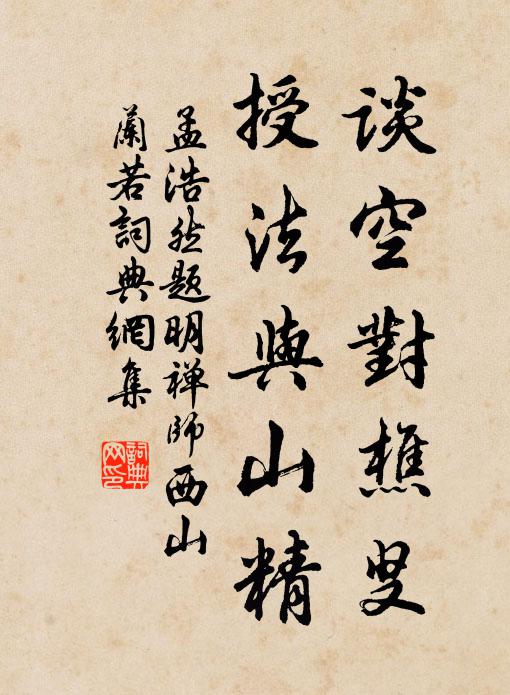 談空對樵叟
授法與山精
孟浩然題明禅師西山
蘭若詞典網集
詞典
网印